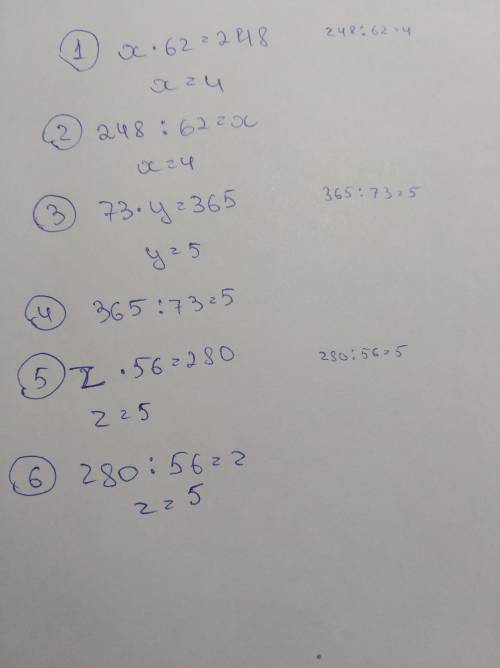 1 x · 62 = 248 248 : 62 = 4
x = 4
2 248 : 62 = x
x = 4
3 73 · y = 365 365 : 73 = 5
y = 5
4 365 : 73 = 5
5 z · 56 = 280 280 : 56 = 5
z = 5
6 280 : 56 = z
z = 5